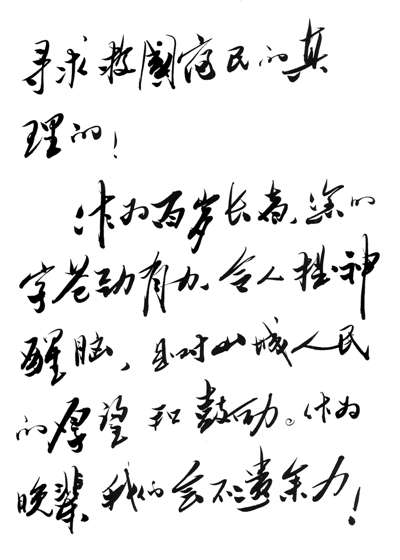 寻求救國富民的真
理的！
作为百岁长者、您的
字苍劲有力、令人提神
醒脑，是对山城人民
的厚望和鼓励。作为
晚辈、我们会不遗余力！